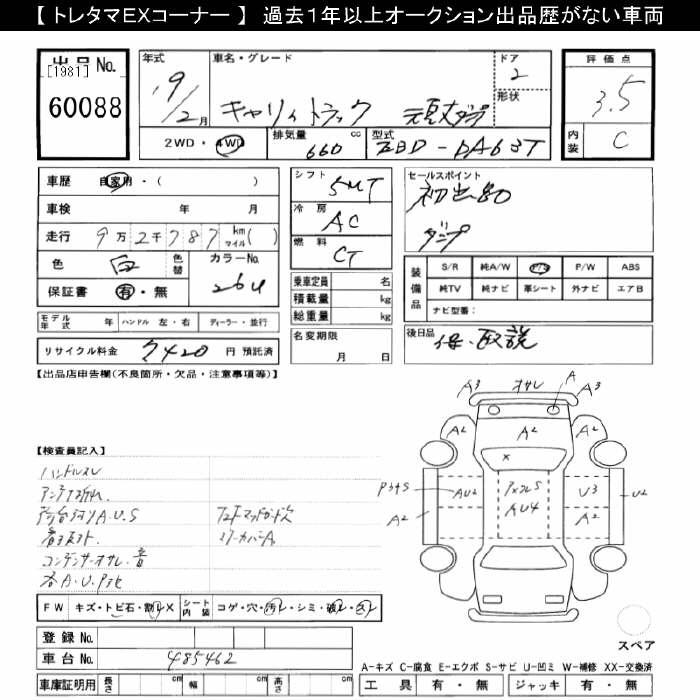 【 トレタマEXコーナー 】 過去１年以上オークション出品歴がない車両
出品 No. [1981] 60088
年式 19/2月
車名・グレード キャリィトラック
ドア 2
形状
2WD・4WD
排気量 660 cc
型式 EBD-DA63T
評価点 3.5
内装 C
車歴 自家用・( )
車検 年 月
走行 9万2千787 km マイル( )
色 白 色替 カラーNo. 26U
保証書 有・無
モデル年式 年 ハンドル 左・右 ディーラー・並行
リサイクル料金 7420 円 預託済
シフト 5MT
冷房 AC
燃料
乗車定員 名
積載量 kg
総重量 kg
名変期限 月 日
セールスポイント
ダンプ
装備品 S/R 純A/W P/S P/W ABS
純TV 純ナビ 革シート 外ナビ エアB
ナビ型番:
後日品 保・取説
【出品店申告欄(不良箇所・欠品・注意事項等)】
【検査員記入】
ハンドルスレ
荷台 A.U.S
コンデンサーオサレ・音
各A.U.
A3 オサレ A A3
A2 A2 A2
X
AU2 AU4 U3 U2
A2 A2
FW キズ・トビ石・割レX シート内装 コゲ・穴・汚レ・シミ・破レ・
登録 No.
車台 No. 485462
車庫証明用 長さ cm 幅 cm 高さ cm
スペア
A-キズ C-腐食 E-エクボ S-サビ U-凹ミ W-補修 XX-交換済
工具 有・無 ジャッキ 有・無